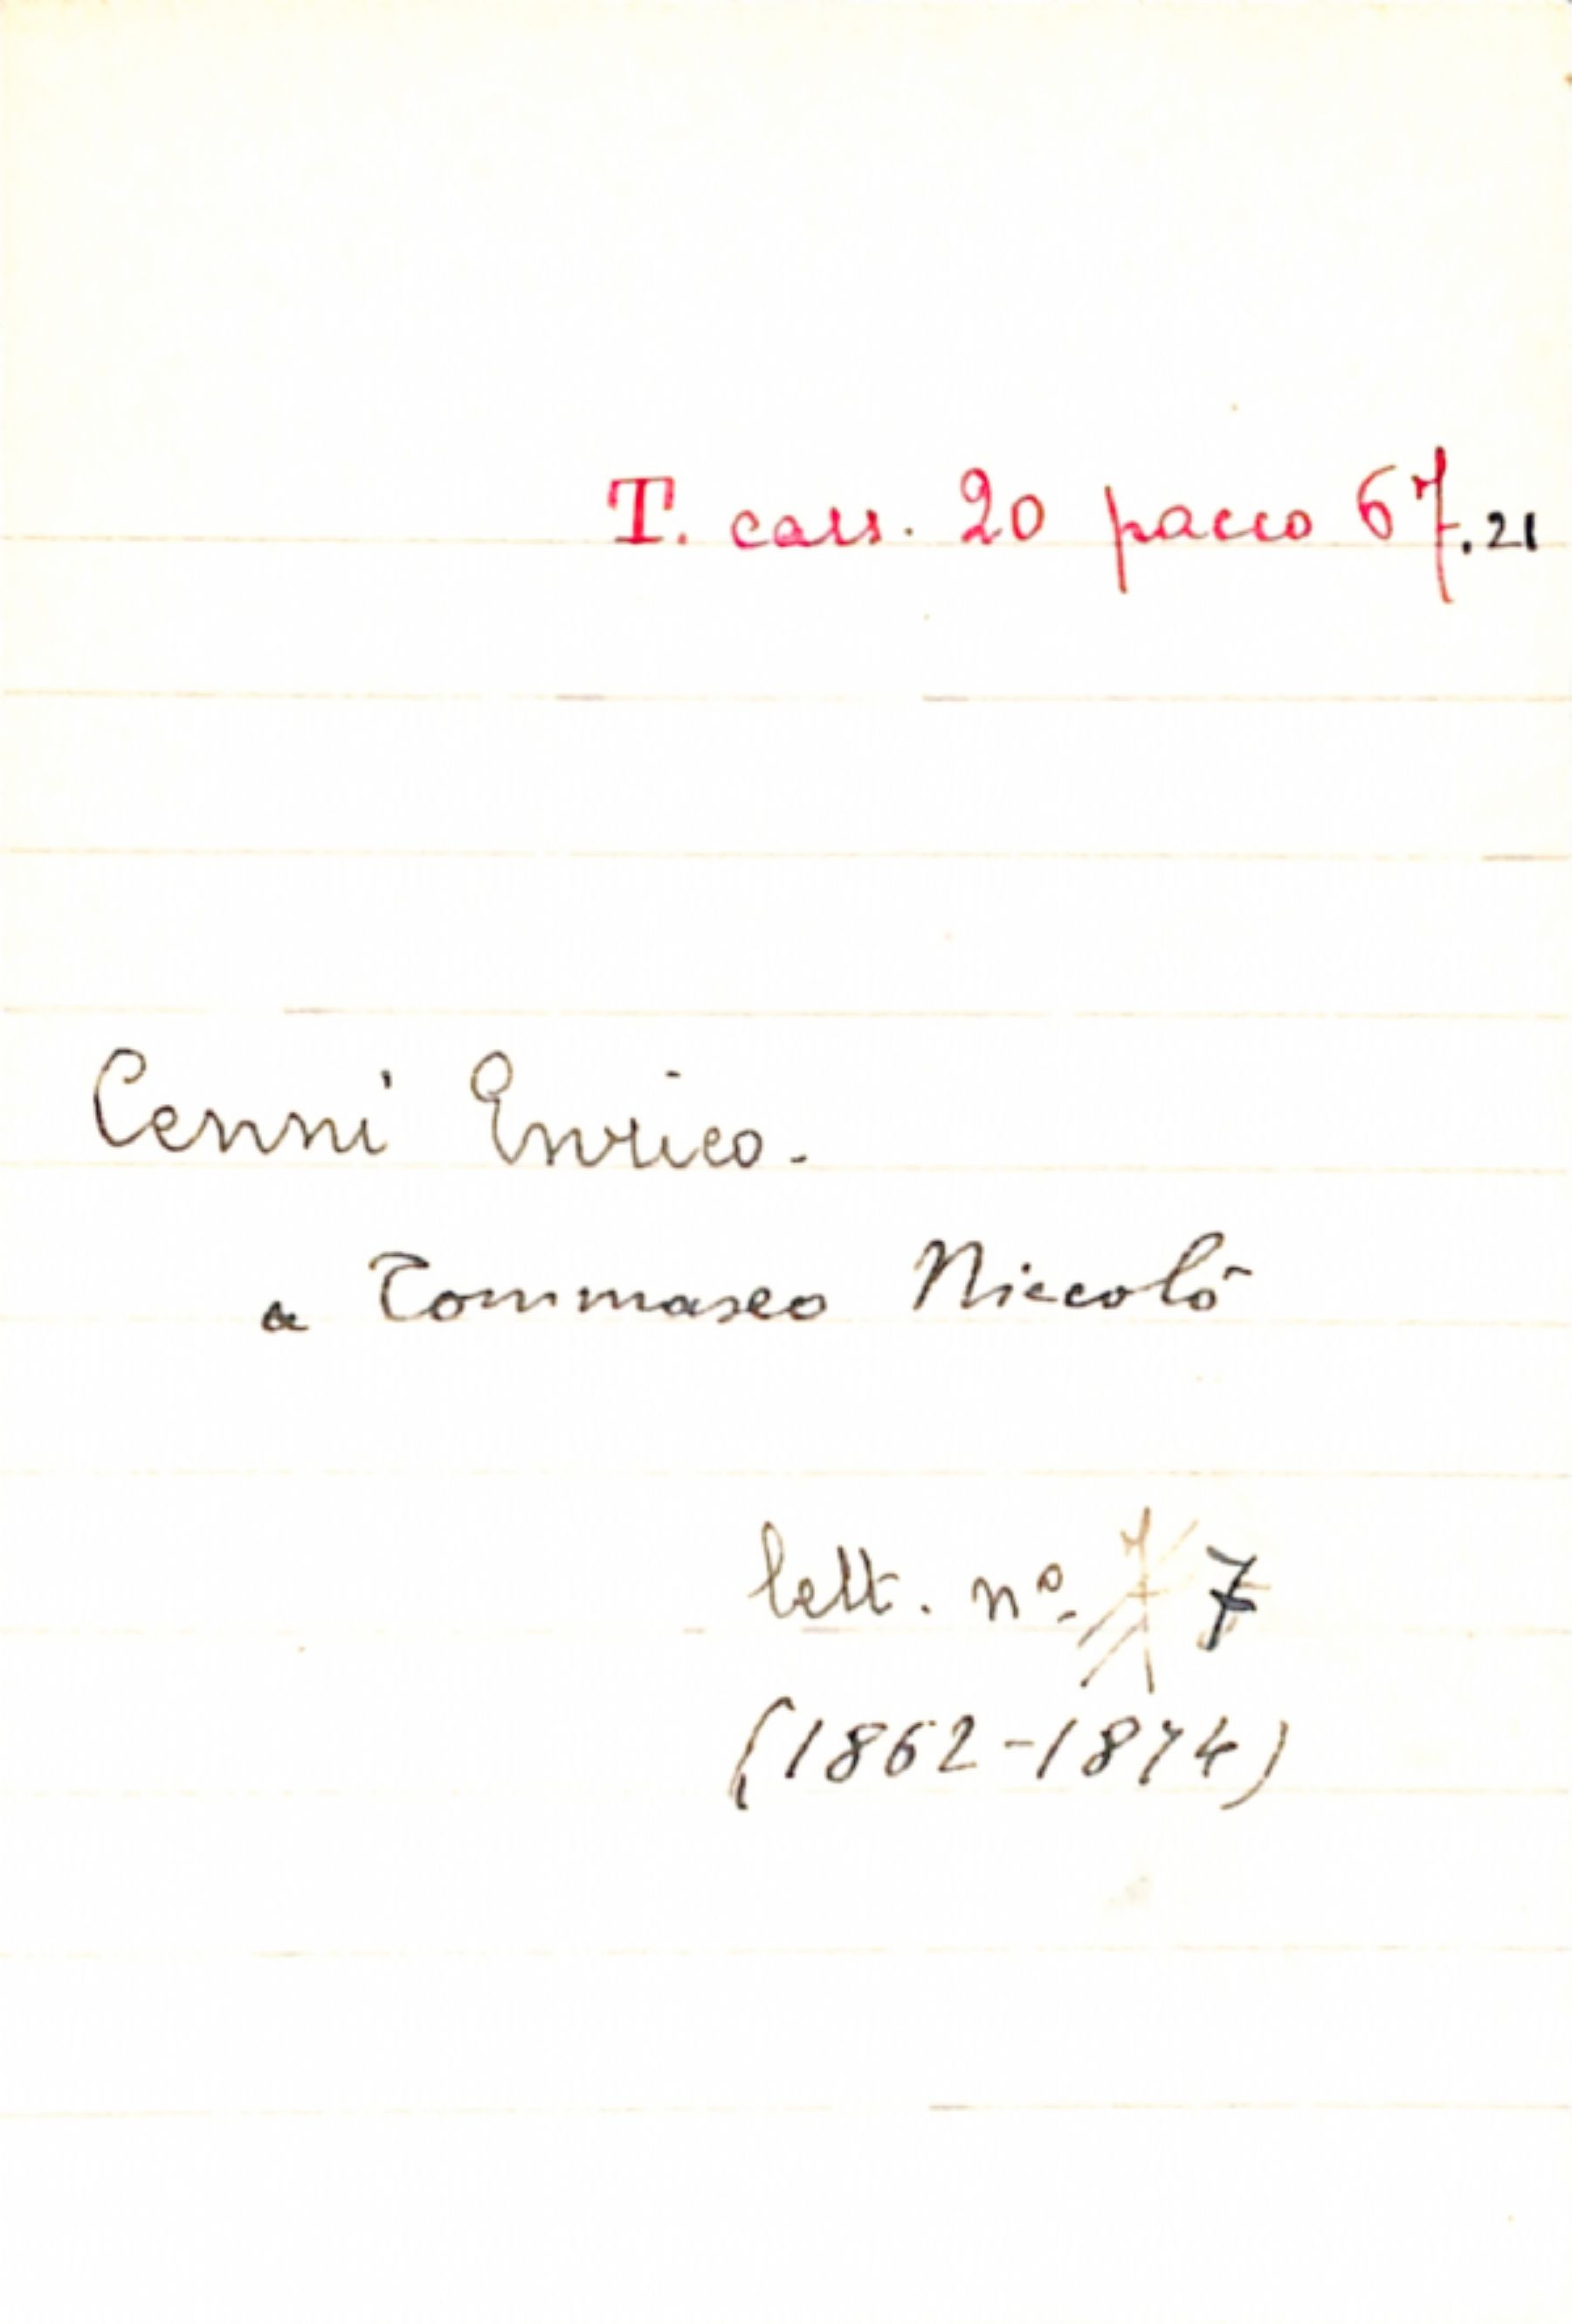 T. cass. 20 pacco 67.21
Cenni Enrico.
a Tommaseo Niccolò
lett. nº. 7 7
(1862-1874)